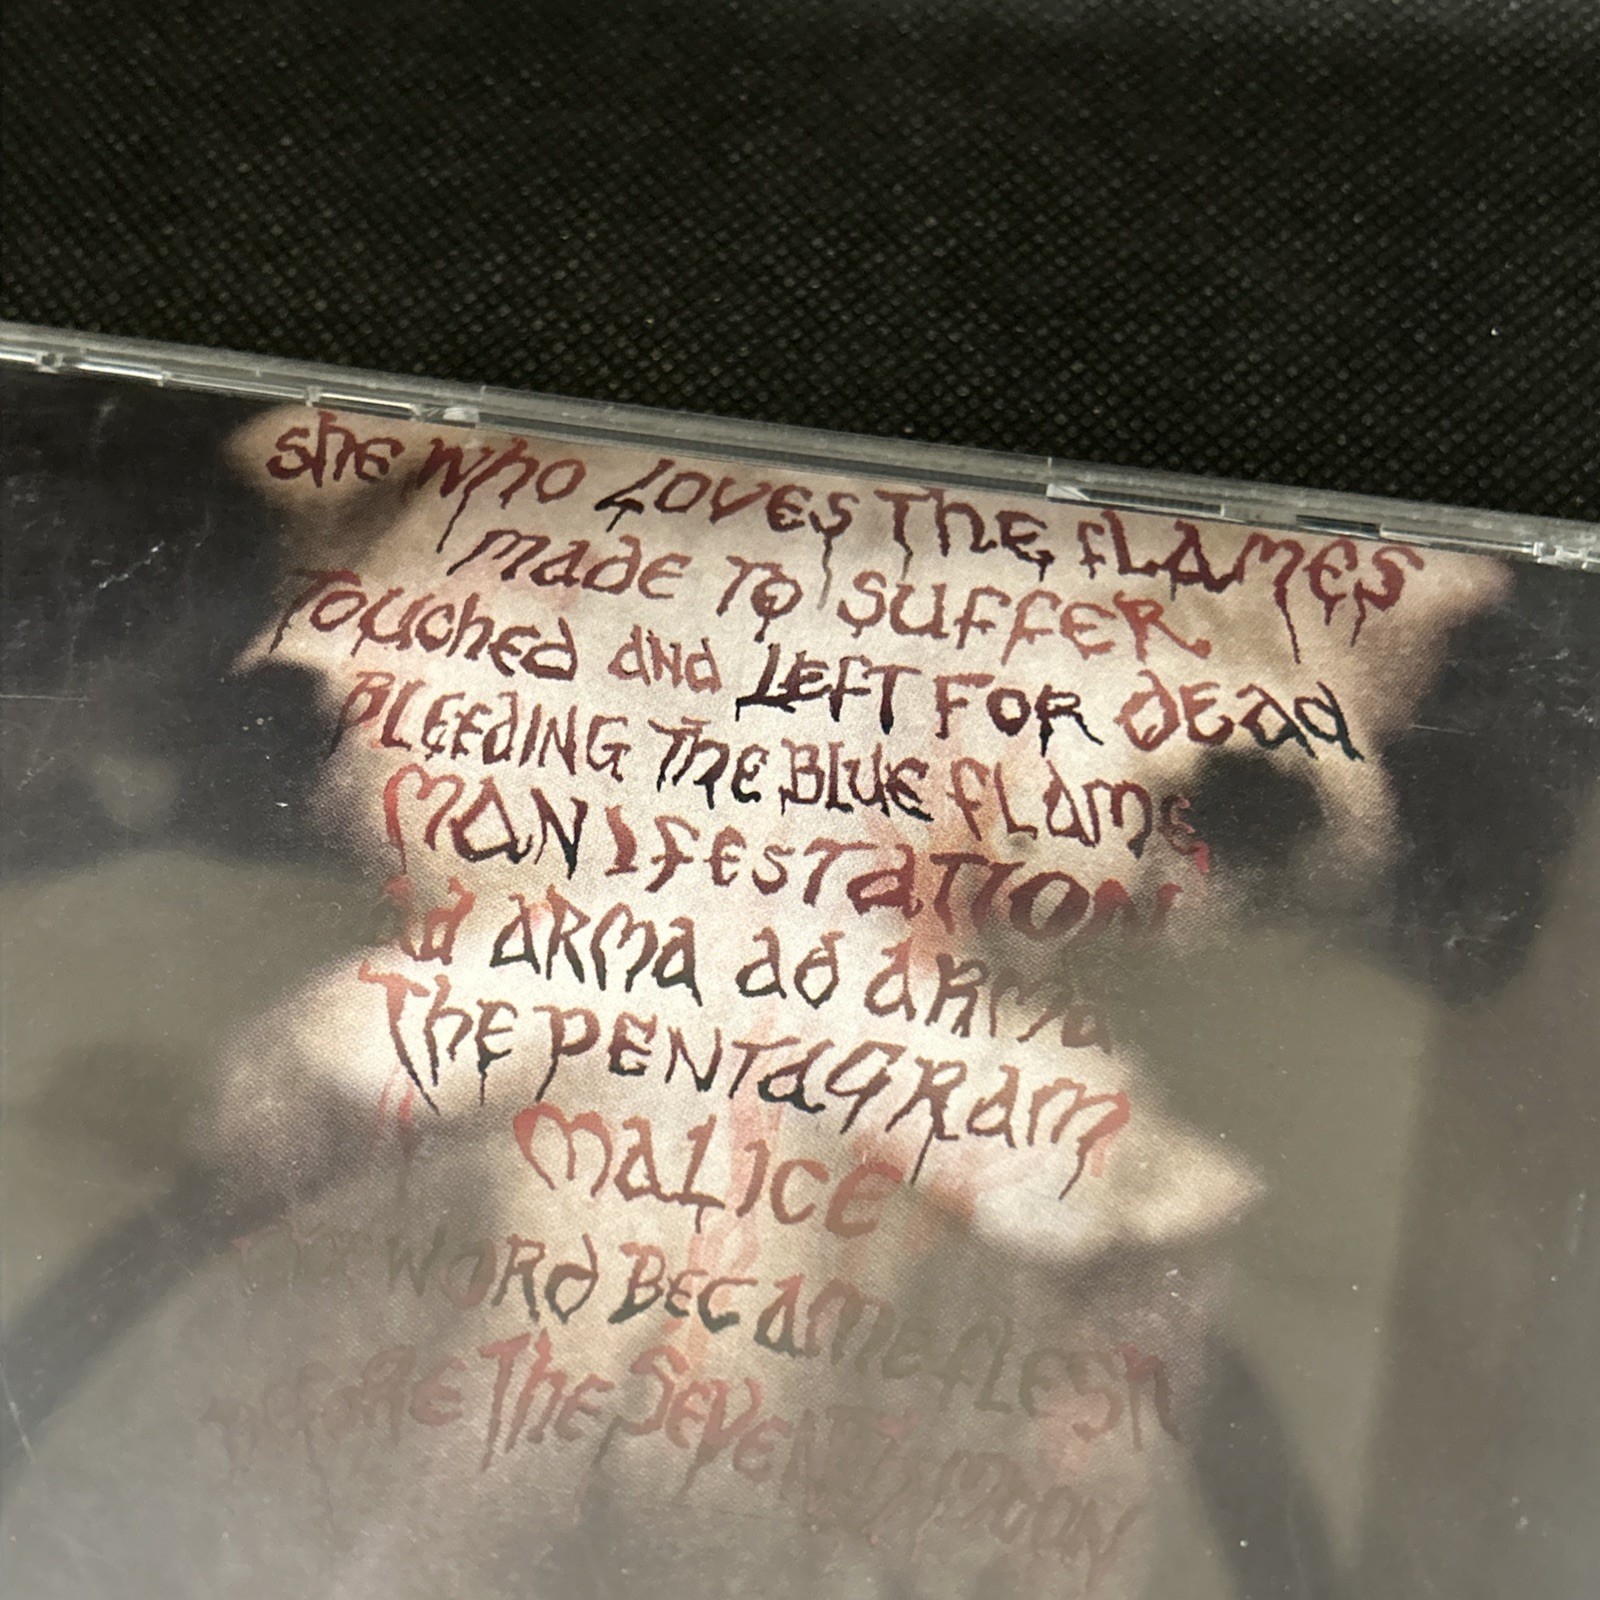 she who Loves The fLAmes
made TO SUFFER
Touched and LEFT FOR dEad
BLEEdING The BLUE fLAmE
MANIFESTATION
ad ARMA ad ARMA
The PENTaGRam
maLICE
The WORd BECamE fLESh
BEFORE The SEVENTh MOON